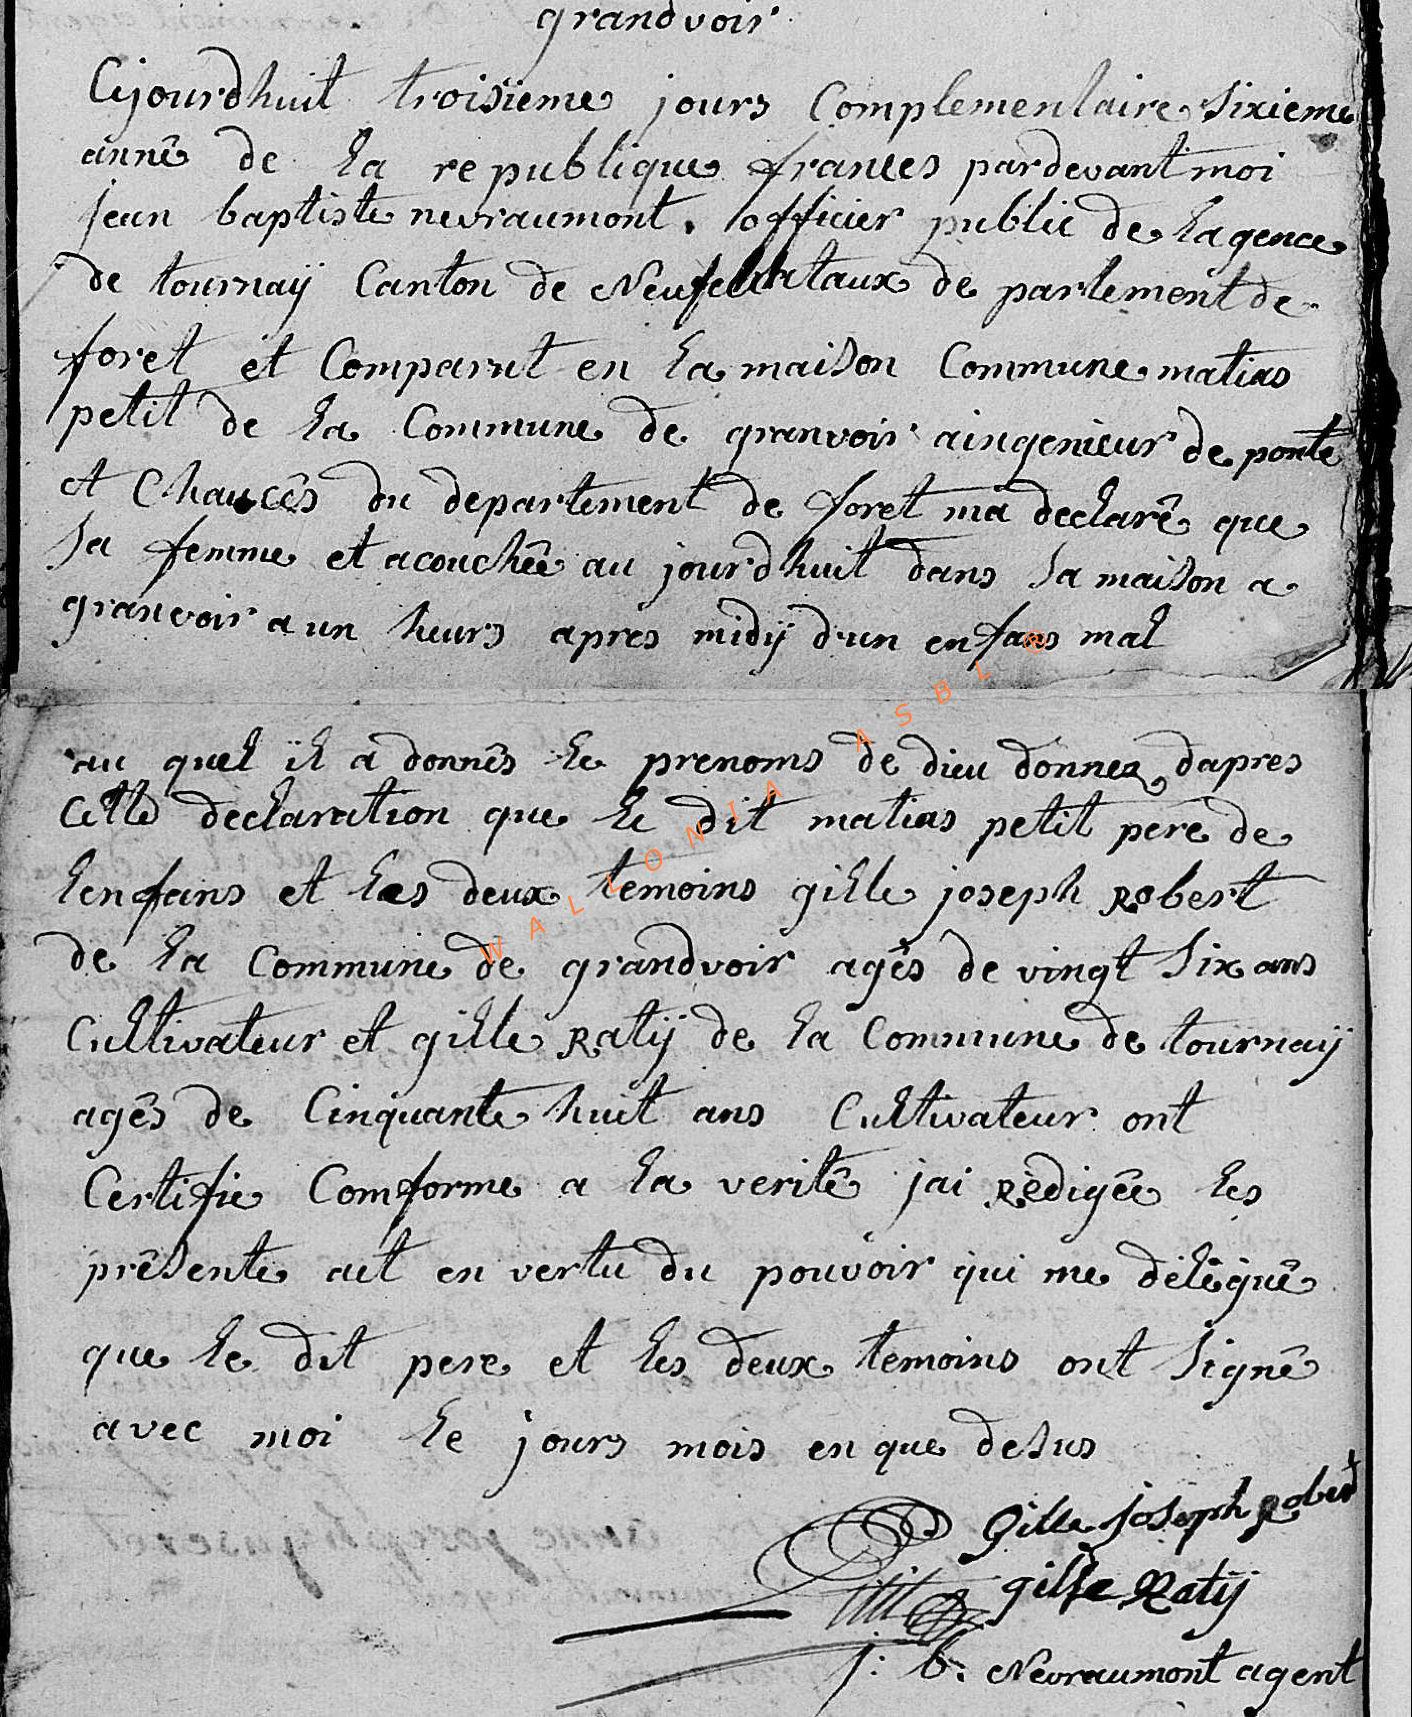 grandvoir
Cejourdhuit troisieme jours Complementaire Sixieme
année de la republique frances pardevant moi
jean baptiste nevraumont. officier public de lagence
de tournaÿ Canton de Neufchataux de partement de
foret et Comparut en la maison Commune matias
petit de la Commune de granvoir aingenieur de ponte
et Chaucês du departement de foret ma declarê que
sa femme et acouchêe au jourdhuit dans sa maison a
granvoir a un heurs apres midÿ d'un enfans mal
au quel il a donnês le prenoms de dieu donnez dapres
Cette declaration que le dit matias petit pere de
lenfans et les deux temoins gille joseph Robert
de la Commune de grandvoir agês de vingt Six ans
Cultivateur et gille Ratÿ de la Commune de tournaÿ
agês de Cinquante huit ans Cultivateur ont
Certifie Comforme a la veritê jai Rèdigêe les
prêsente act en vertu du pouvoir qui me délêguê
que le dit pere et les deux temoins ont Signê
avec moi le jours mois en que desus
Gille joseph Robert
Petit gille Ratÿ
j: b. Nevraumont agent
WALLONIA ASBL ®